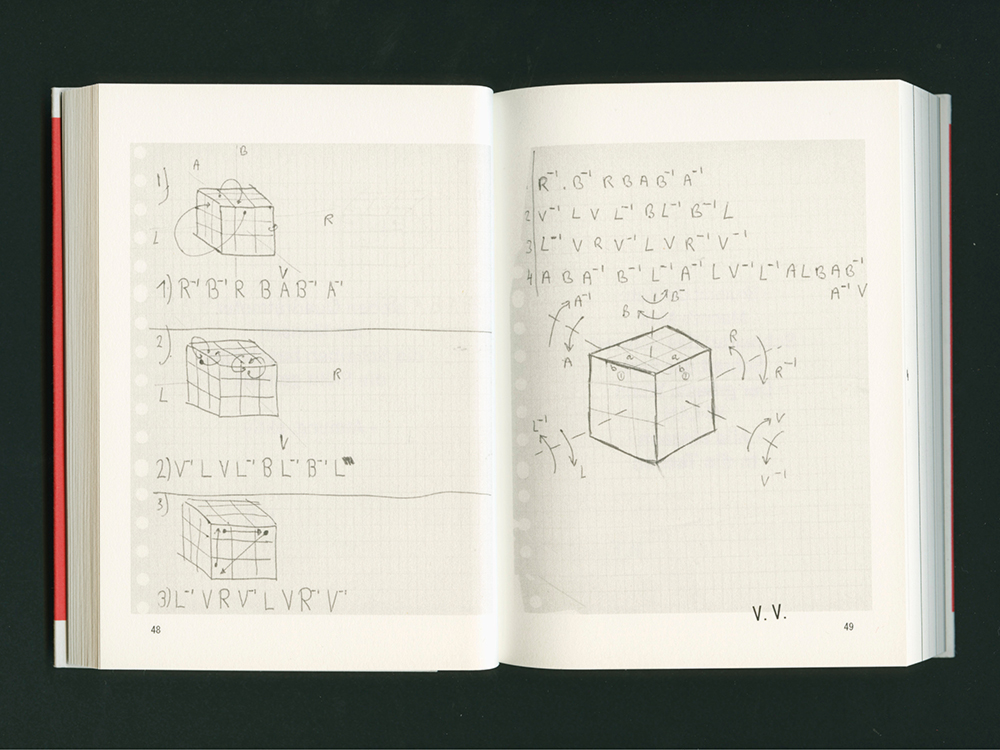 1)
A
B
L
R
V
1) R⁻¹ B⁻¹ R B A B⁻¹ A⁻¹
2)
L
R
V
2) V⁻¹ L V L⁻¹ B L⁻¹ B⁻¹ L
3)
3) L⁻¹ V R V⁻¹ L V R⁻¹ V⁻¹
48
R⁻¹. B⁻¹ R B A B⁻¹ A⁻¹
2 V⁻¹ L V L⁻¹ B L⁻¹ B⁻¹ L
3 L⁻¹ V R V⁻¹ L V R⁻¹ V⁻¹
4 A B A⁻¹ B⁻¹ L⁻¹ A⁻¹ L V⁻¹ L⁻¹ A L B A B⁻¹
A⁻¹ V
A⁻¹
B⁻¹
B
A
R
R⁻¹
a a
b b
1 1
L⁻¹
L
V
V⁻¹
V. V.
49